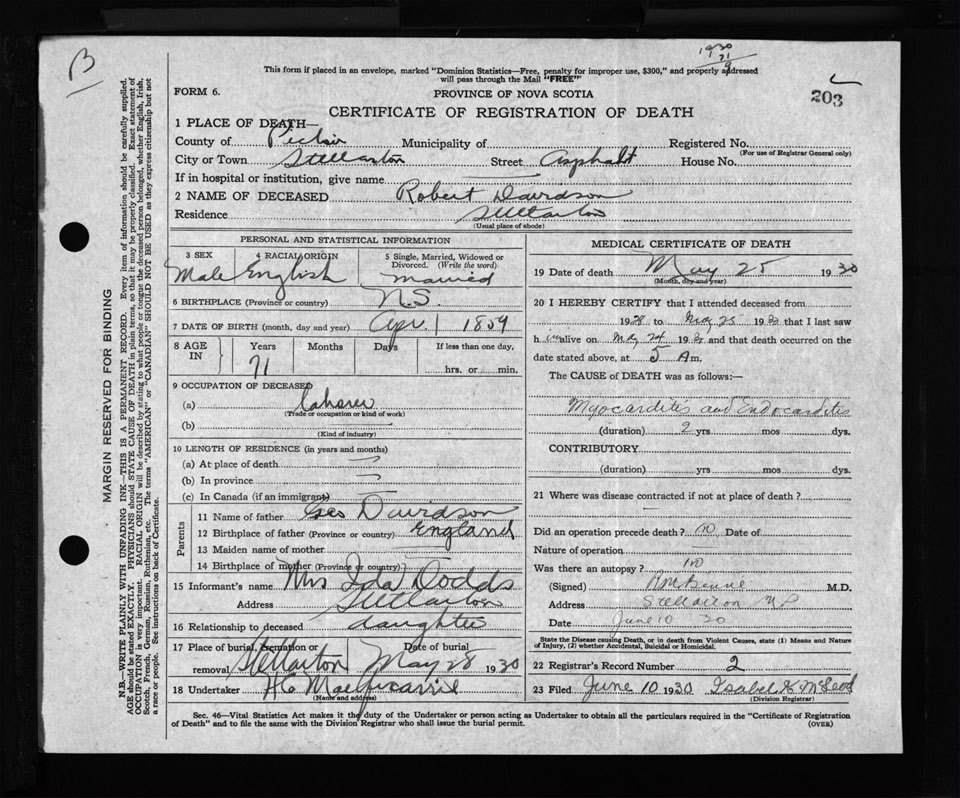 B
1930
This form if placed in an envelope, marked "Dominion Statistics—Free, penalty for improper use, $300," and properly addressed
will pass through the Mail "FREE"
FORM 6. PROVINCE OF NOVA SCOTIA 203
CERTIFICATE OF REGISTRATION OF DEATH
1 PLACE OF DEATH—
County of Pictou Municipality of Registered No.
(For use of Registrar General only)
City or Town Stellarton Street Asphalt House No.
If in hospital or institution, give name
2 NAME OF DECEASED Robert Davidson
Residence Stellarton
(Usual place of abode)
PERSONAL AND STATISTICAL INFORMATION
3 SEX 4 RACIAL ORIGIN 5 Single, Married, Widowed or
Divorced. (Write the word)
Male English Married
6 BIRTHPLACE (Province or country) N.S.
7 DATE OF BIRTH (month, day and year) Apr. 1 1859
8 AGE IN Years Months Days If less than one day,
71 hrs. or min.
9 OCCUPATION OF DECEASED
(a) Laborer
(Trade or occupation or kind of work)
(b)
(Kind of industry)
10 LENGTH OF RESIDENCE (in years and months)
(a) At place of death
(b) In province
(c) In Canada (if an immigrant)
Parents
11 Name of father Geo Davidson
12 Birthplace of father (Province or country) England
13 Maiden name of mother
14 Birthplace of mother (Province or country)
15 Informant's name Mrs Ida Dodds
Address Stellarton
16 Relationship to deceased daughter
17 Place of burial, cremation or Date of burial
removal Stellarton May 28 1930
18 Undertaker H.C.
(Name and address)
MEDICAL CERTIFICATE OF DEATH
19 Date of death May 25 1930
(Month, day and year)
20 I HEREBY CERTIFY that I attended deceased from
1928 to May 25 1930 that I last saw
h im alive on May 24 1930 and that death occurred on the
date stated above, at 5 A m.
The CAUSE of DEATH was as follows:—
Myocarditis and Endocarditis
(duration) 2 yrs mos dys.
CONTRIBUTORY
(duration) yrs mos dys.
21 Where was disease contracted if not at place of death?
Did an operation precede death? no Date of
Nature of operation
Was there an autopsy? no
(Signed) M.D.
Address Stellarton NS
Date June 10 30
State the Disease causing Death, or in death from Violent Causes, state (1) Means and Nature
of Injury, (2) whether Accidental, Suicidal or Homicidal.
22 Registrar's Record Number 2
23 Filed June 10 1930 Isabel K McLeod
(Division Registrar)
Sec. 46—Vital Statistics Act makes it the duty of the Undertaker or person acting as Undertaker to obtain all the particulars required in the "Certificate of Registration
of Death" and to file the same with the Division Registrar who shall issue the burial permit. (OVER)
MARGIN RESERVED FOR BINDING
N.B.—WRITE PLAINLY WITH UNFADING INK—THIS IS A PERMANENT RECORD. Every item of information should be carefully supplied.
AGE should be stated EXACTLY. PHYSICIANS should STATE CAUSE OF DEATH in plain terms, so that it may be properly classified. Exact statement of
OCCUPATION is very important. RACIAL ORIGIN will be described by stating to what people or tongue the deceased person belonged, whether English, Irish,
Scotch, French, German, Russian, Ruthenian, etc. The terms "AMERICAN" or "CANADIAN" SHOULD NOT BE USED as they express citizenship but not
a race or people. See instructions on back of Certificate.